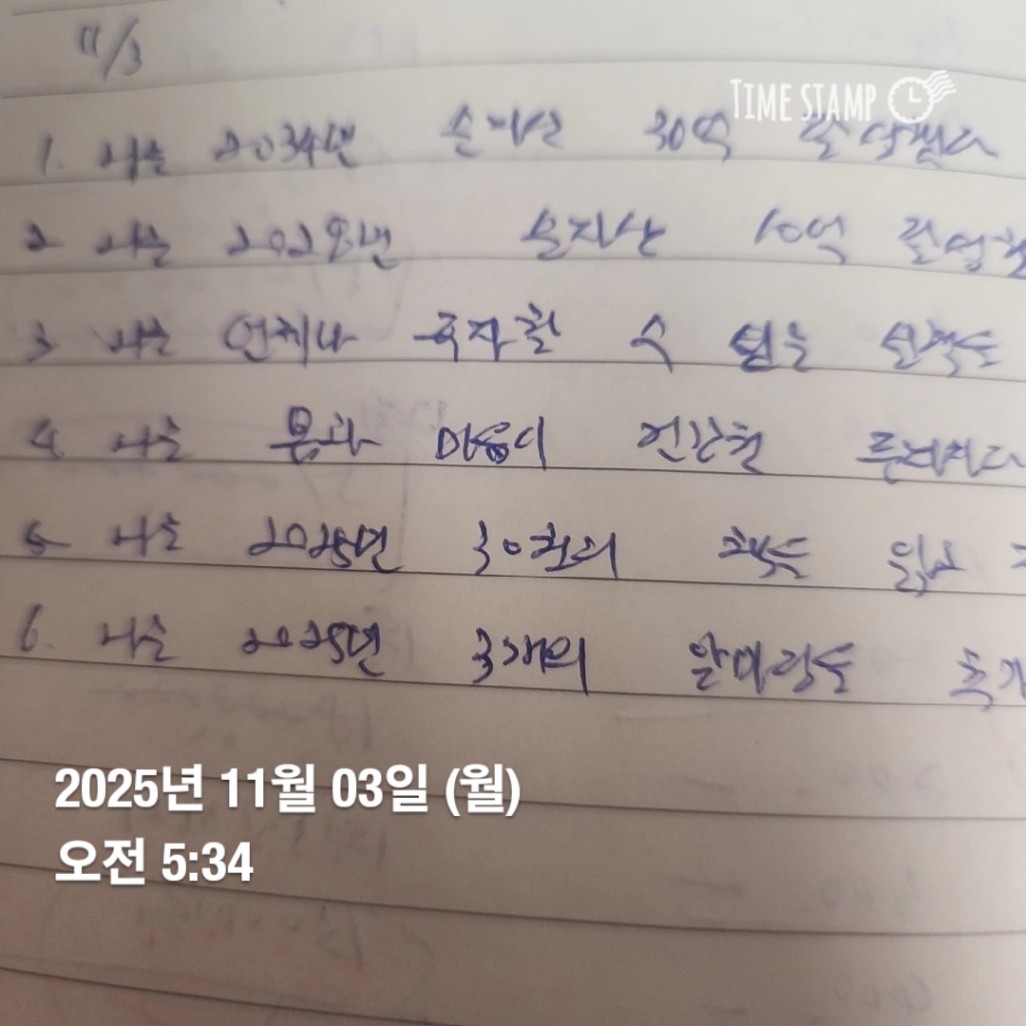 11/3
TIME STAMP
1. 나는 2034년 순자산 30억 달성했다
2 나는 2028년 순자산 10억 달성
3 나는 언제나 투자할 수 있는
4 나는 몸과 마음이 건강한
5 나는 2025년 30권의 책을 읽고
6. 나는 2025년 3개의 알파광을 추가
2025년 11월 03일 (월)
오전 5:34